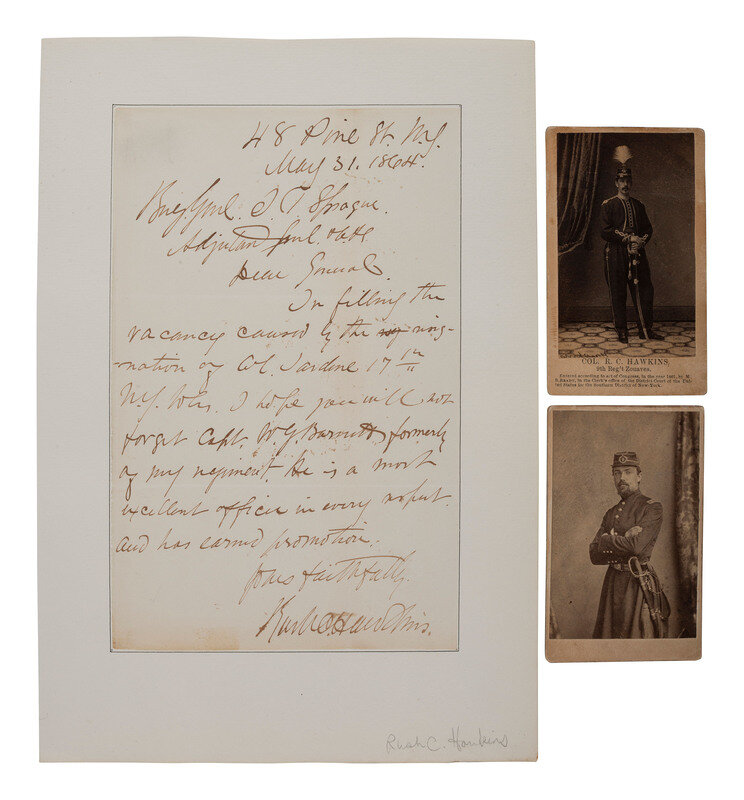 48 Pine St. N.Y.
May 31. 1864.
Brig. Genl. J. T. Sprague.
Adjutant Genl.
Dear General.
In filling the
vacancy caused by the resig-
-nation of Col. Jardine 17th
N.Y. Vols. I hope you will not
forget Capt. W. G. Barnett, formerly
of my regiment. He is a most
excellent officer in every respect.
and has earned promotion.
Yours faithfully.
Rush C. Hawkins.
Rush C. Hawkins
COL. R. C. HAWKINS,
9th Reg't Zouaves.
Entered according to act of Congress, in the year 1861, by M.
B. BRADY, in the Clerk's office of the District Court of the Uni-
ted States for the Southern District of New-York.